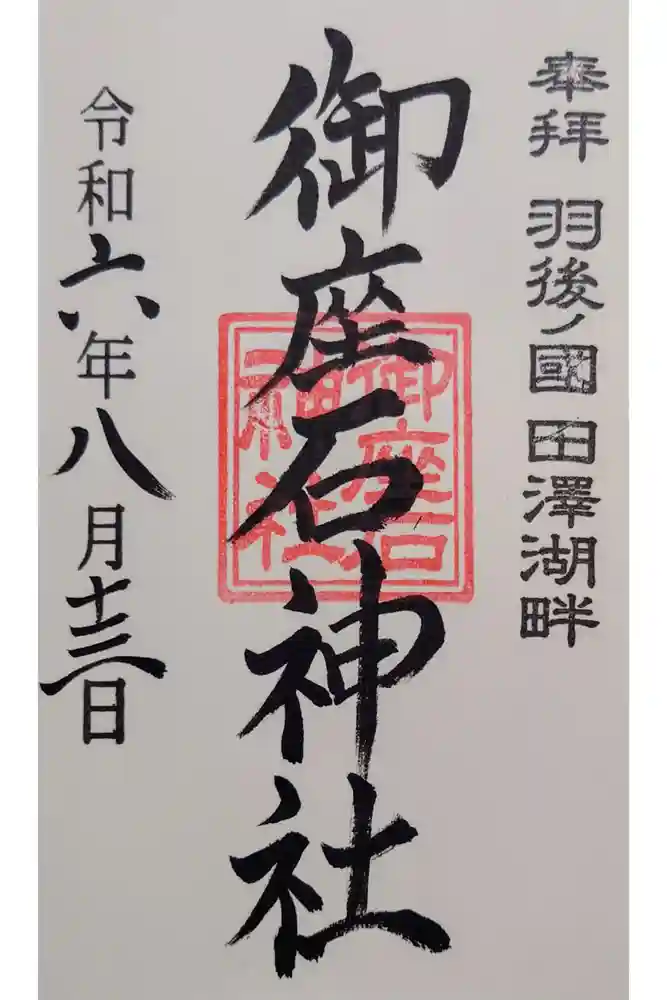 奉拝 羽後ノ國 田澤湖畔
御座石神社
御座石
神社
令和六年八月十三日